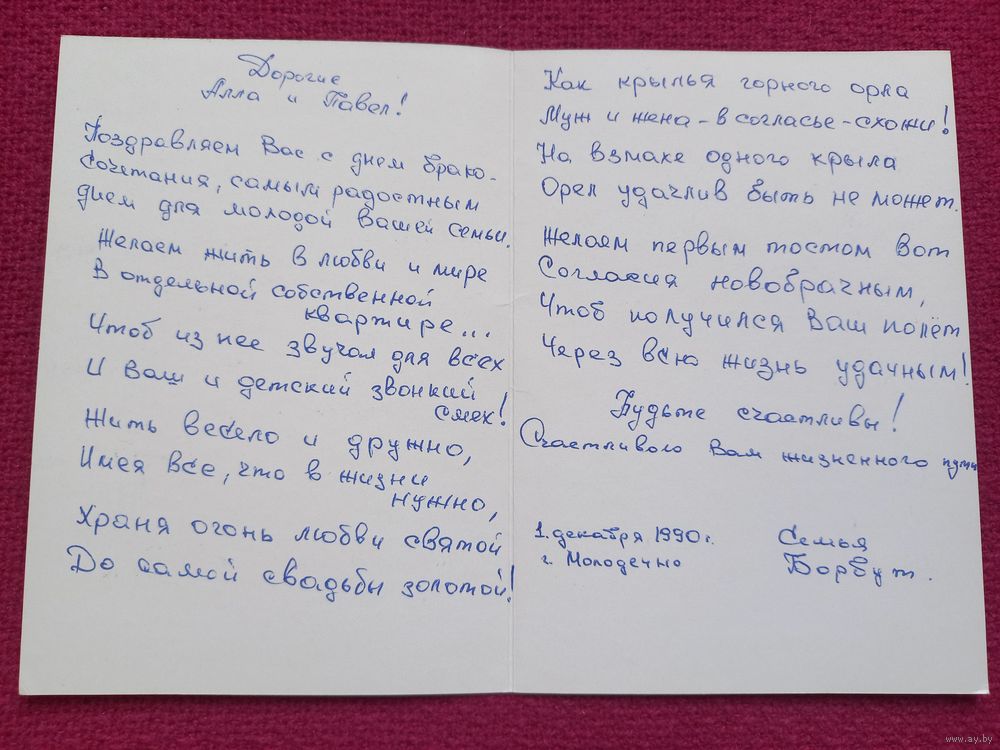 Дорогие
Алла и Павел!
Поздравляем Вас с днем брако-
сочетания, самым радостным
днем для молодой Вашей семьи.
Желаем жить в любви и мире
В отдельной собственной
квартире...
Чтоб из нее звучал для всех
И ваш и детский звонкий
смех!
Жить весело и дружно,
Имея все, что в жизни
нужно,
Храня огонь любви святой
До самой свадьбы золотой!
Как крылья горного орла
Муж и жена - в согласье - схожи!
На взмахе одного крыла
Орел удачлив быть не может.
Желаем первым тостом вот
Согласия новобрачным,
Чтоб получился Ваш полёт
Через всю жизнь удачным!
Будьте счастливы!
Счастливого Вам жизненного пути
1. декабря 1990 г.
г. Молодечно
Семья
Борвут.
www.ay.by